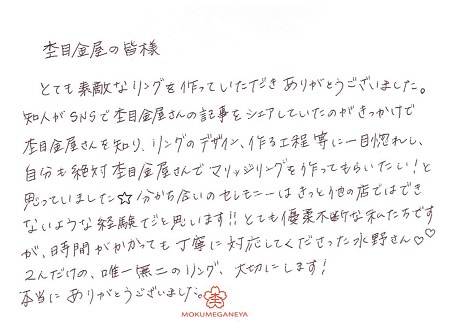 杢目金屋の皆様
とても素敵なリングを作っていただきありがとうございました。
知人がSNSで杢目金屋さんの記事をシェアしていたのがきっかけで
杢目金屋さんを知り、リングのデザイン、作る工程等に一目惚れし、
自分も絶対杢目金屋さんでマリッジリングを作ってもらいたい！と
思っていました☆分かち合いのセレモニーはきっと他の店ではでき
ないような経験だと思います!!とても優柔不断な私たちです
が、時間がかかっても丁寧に対応してくださった水野さん♡♡
2人だけの、唯一無二のリング、大切にします！
本当にありがとうございました。
MOKUMEGANEYA